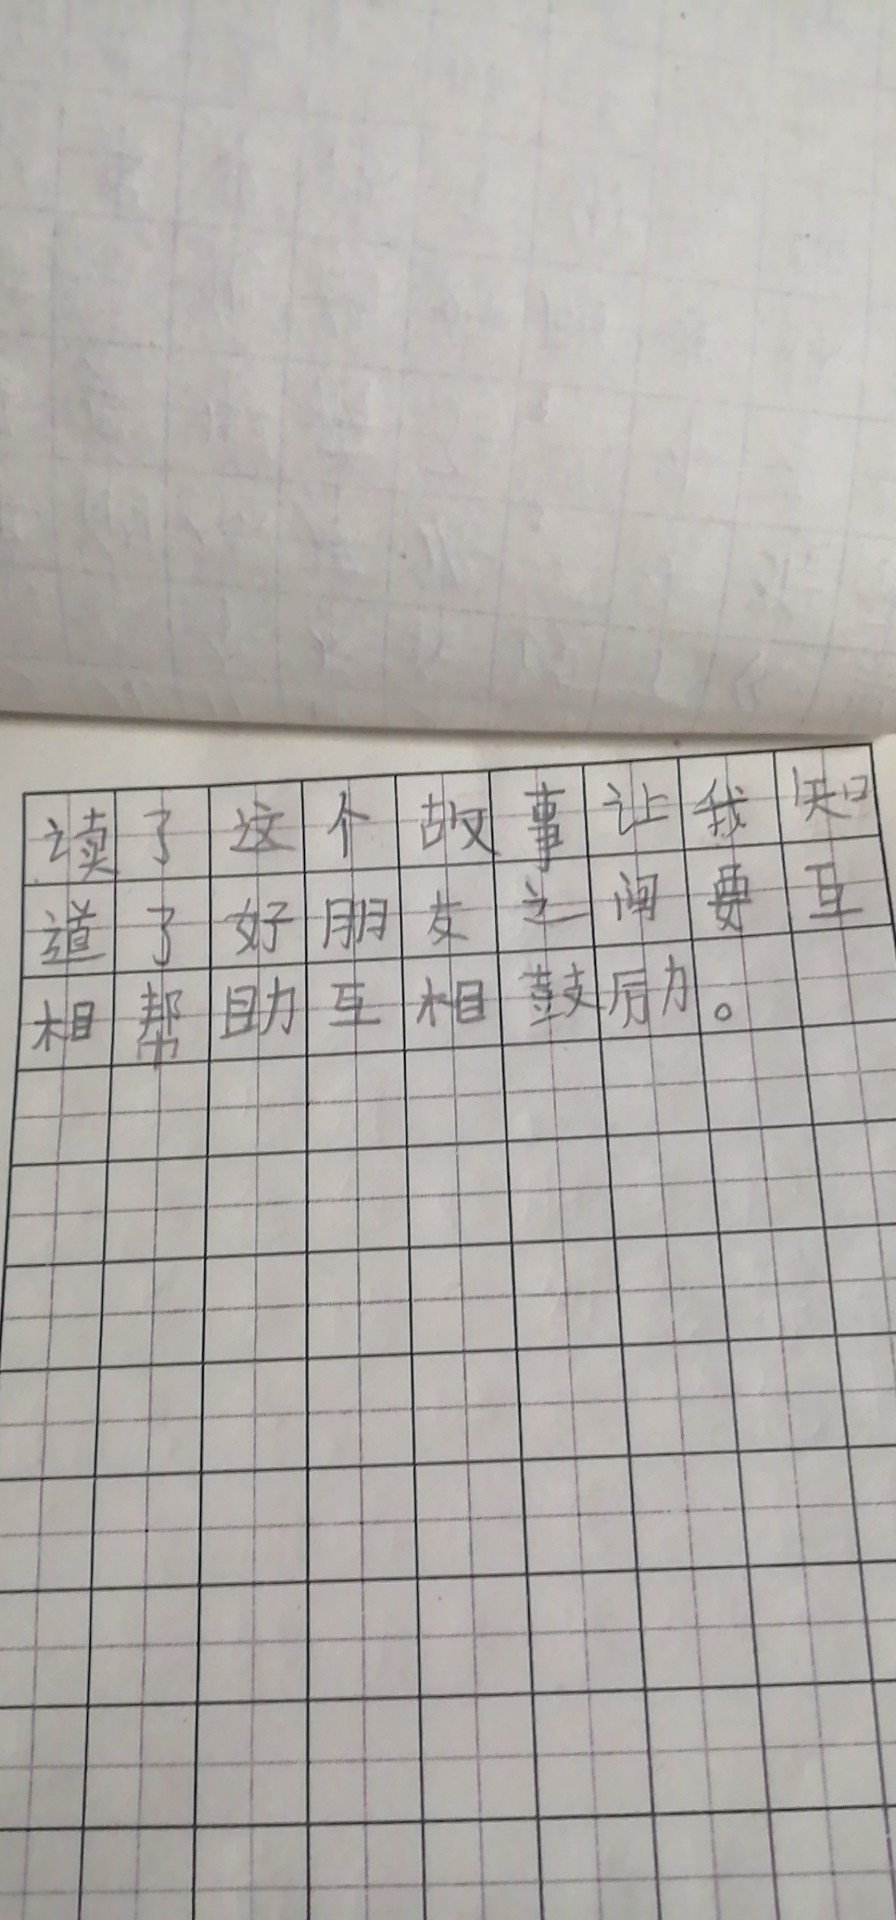 读了这个故事让我知
道了好朋友之间要互
相帮助互相鼓励。